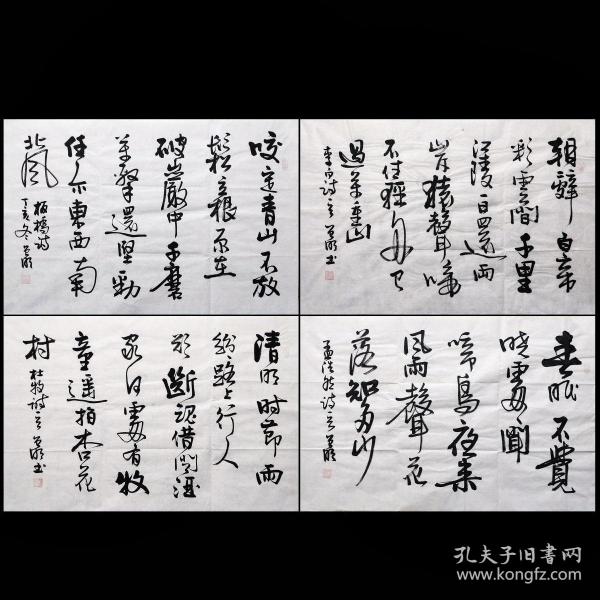 咬定青山不放
鬆立根原在
破巖中千磨
萬擊還堅勁
任尔東西南
北風
板橋詩
丁亥冬
朝辭白帝
彩雲間千里
江陵一日還兩
岸猿聲啼
不住輕舟已
過萬重山
李白詩
书
清明时節雨
紛紛路上行人
欲斷魂借問酒
家何處有牧
童遥指杏花
村
杜牧詩
书
春眠不覺
曉處處聞
啼鳥夜来
風雨聲花
落知多少
孟浩然詩
孔夫子旧书网
www.kongfz.com